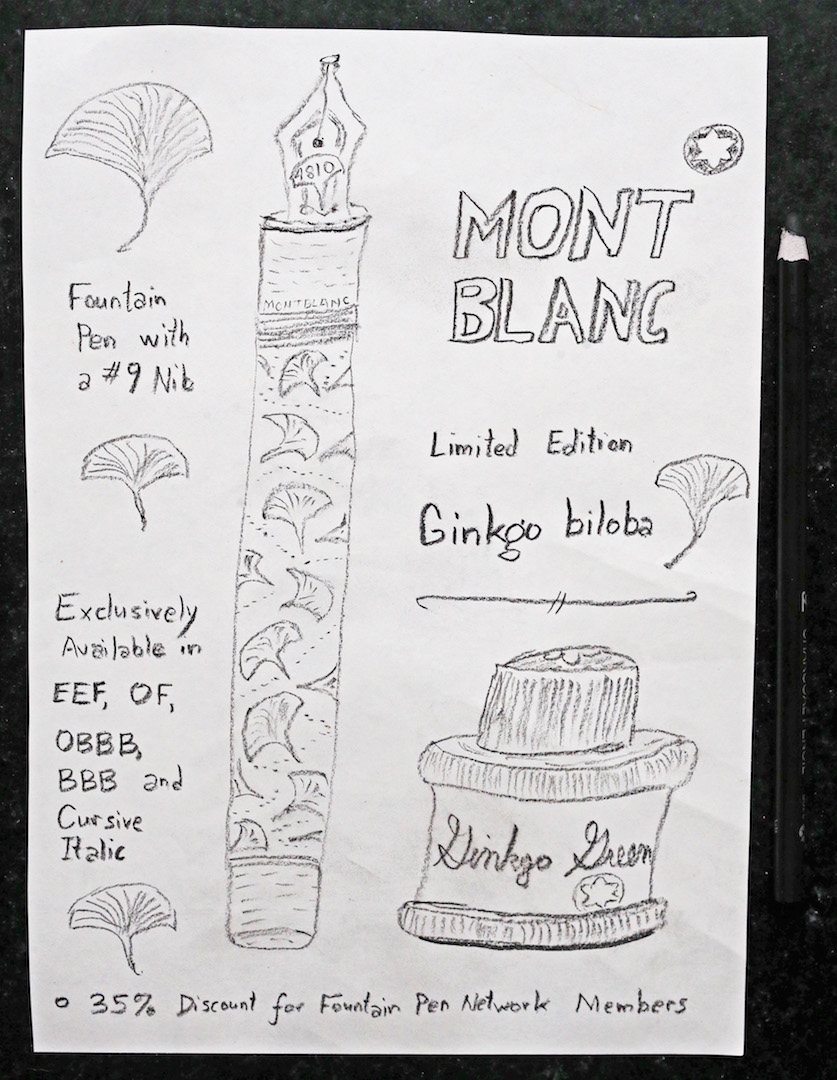 4810
MONTBLANC
MONT
BLANC
Fountain
Pen with
a #9 Nib
Limited Edition
Ginkgo biloba
Exclusively
Available in
EEF, OF,
OBBB,
BBB and
Cursive
Italic
Ginkgo Green
35% Discount for Fountain Pen Network Members